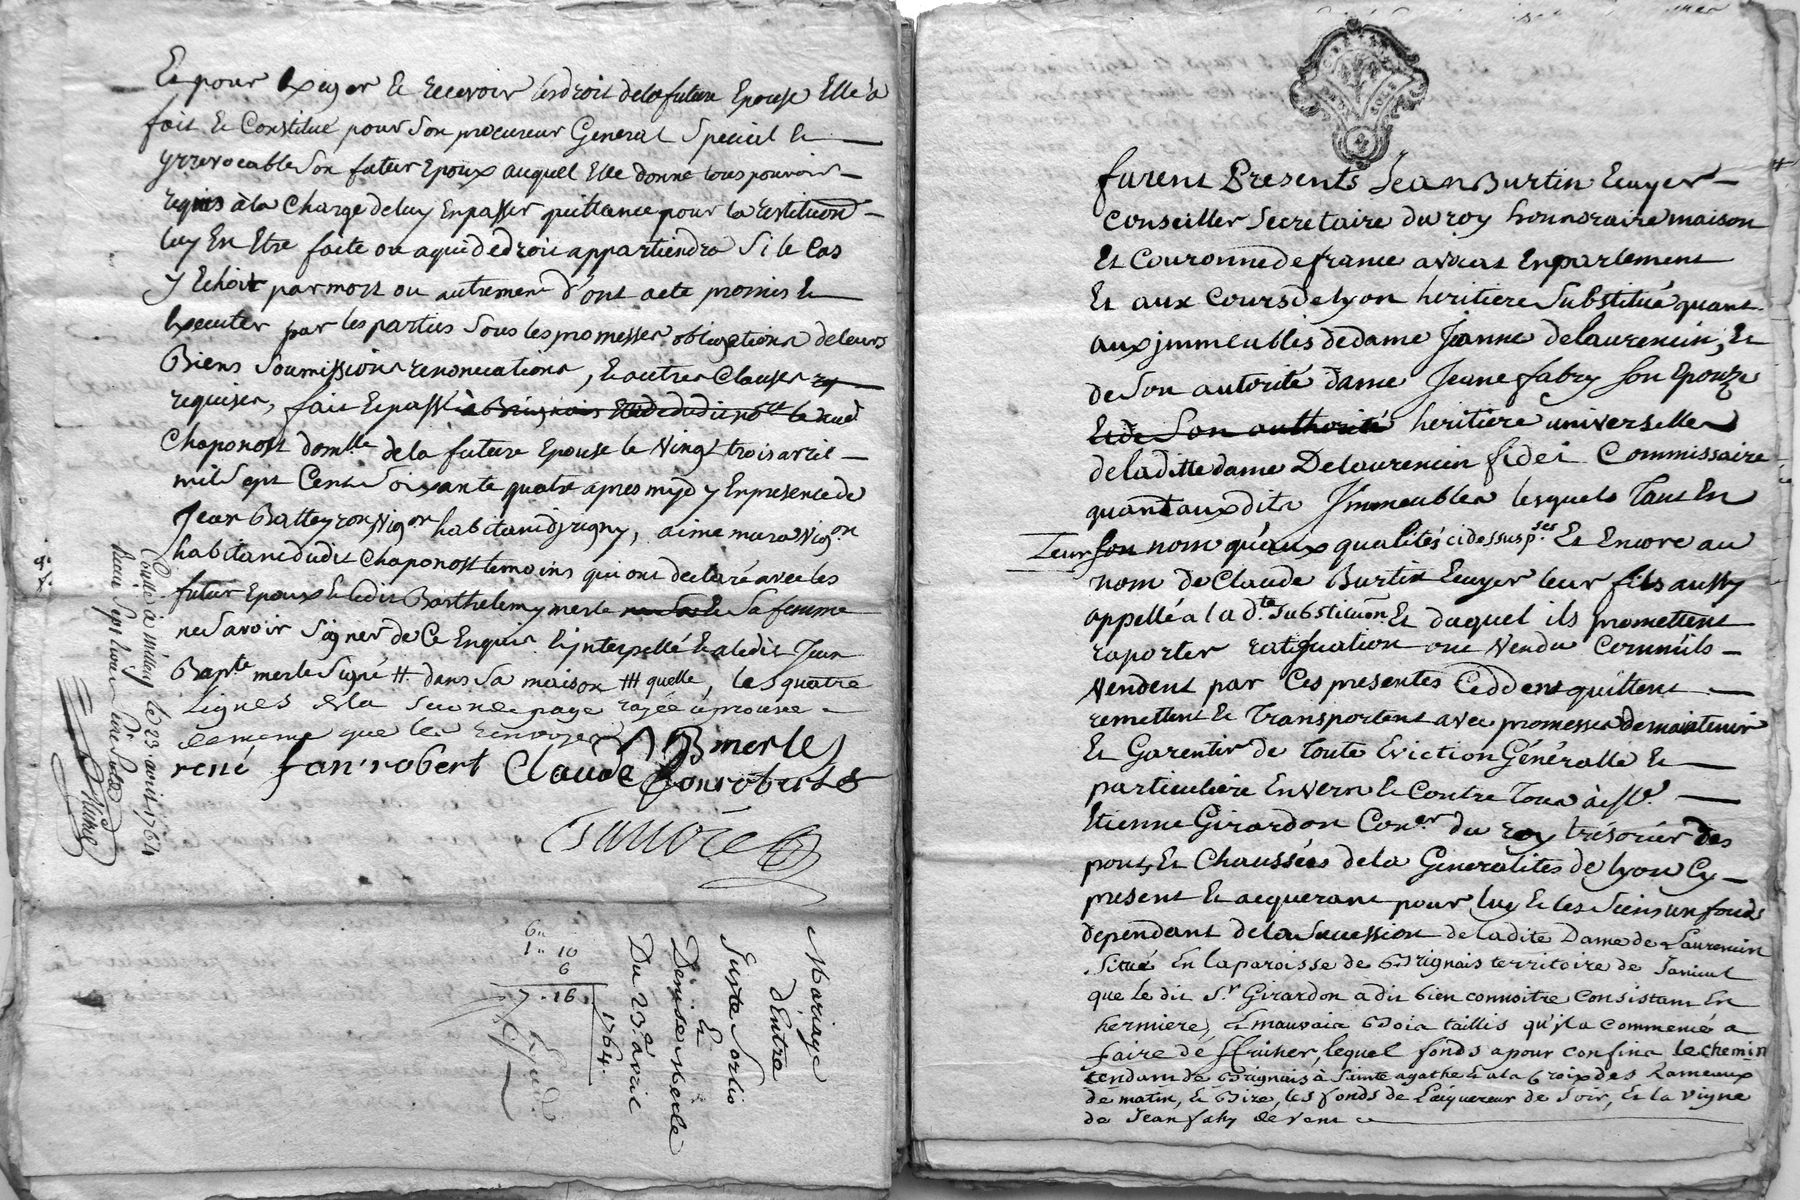 Et pour Exiger Et recevoir les droit de la future Epouse Elle a
fait Et Constitué pour Son procureur General Special Et
yrrevocable Son futur Epoux auquel Elle donne tous pouvoirs
requis à la Charge de luy En passer quittance pour la restitution
luy En Etre faite ou a qui de droit appartiendra Si le Cas
y Echoit par mort ou autrement d'ont acte promis Et
Executer par les parties Sous les promesses obligations de leurs
Biens Soumissions renonciations, Et autres Clauses
requises, fait Et passé
Chaponost domlle de la future Epouse le Vingt trois avril
mil Sept Cent Soixante quatre apres mydy En presence de
Jean Batteyron Vigon habitant dyrigny, aime mura Vigon
habitant dudit Chaponost temoins qui ont declaré avec les
futur Epoux Et ledit Barthelemy merle Sa femme
ne Savoir Signer de Ce Enquis Et interpellé Et a ledit Jean
Bapte merle Signé # dans Sa maison ### quelle les quatre
lignes Et la page rayée aprouvée
de meme que les renvoys
JB merle
rené fonrobert Claude fonrobert
Mariage
d'Entre
Juste Sorlin
Et
Denise Merle
Du 23e avril
1764.
6"
1" 10
6
7 . 16
Conllé à millery le 23 avril 1764
Recu Sept livres
furent Presents Jean Burtin Ecuyer
Conseiller Secretaire du roy honnoraire maison
Et Couronne de france avocat En parlement
Et aux Cours de lyon heritiere Substitué quant
aux jmmeubles de dame Jeanne delaurencin, Et
de Son autorité dame Jeane fabry Son Epouze
Et de Son authorité heritiere universelle
de la ditte dame Delaurencin fidei Commissaire
quant auxdits Jmmeubles lesquels Tant En
Leur Son nom qu'aux qualités cidessus pses. Et Encore au
nom de Claude Burtin Ecuyer leur fils aussy
appellé a la dte Substituon Et duquel ils promettent
raporter ratiffication ont Vendu Comm'ils
Vendent par Ces presentes Ceddent quittent
remettent Et Transportent avec promesse de maintenir
Et Garentir de Toute Eviction Généralle Et
particuliere Envers Et Contre Tous à Sr.
Etienne Girardon Coner du roy trésorier des
ponts Et Chaussées de la Generalités de lyon Cy
present Et acquerant pour luy Et les Siens un fonds
dependant de la Sucession de ladite Dame de Laurencin
Situé En la paroisse de Brignais territoire de Janicut
que le dit Sr Girardon a dit bien connoitre Consistant En
hermieres, Et mauvais Bois taillis qu'il a Commencé a
faire defricher, lequel fonds a pour Confins le chemin
tendant de Brignais à Sainte agathe Et a la Croix des Rameaux
de matin, Et Bize, les fonds de l'aiquereur de Soir, Et la vigne
de Jean faky de Vent